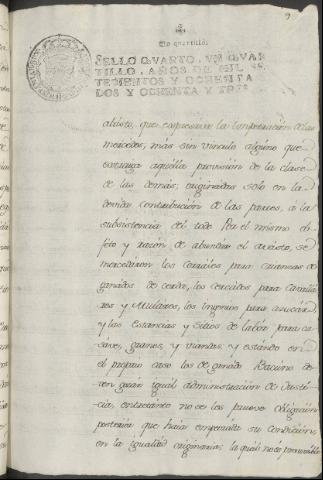 9
Un quartillo.
SELLO QVARTO, VN QVAR-
TILLO, AÑOS DE MIL SE-
TECIENTOS Y OCHENTA
DOS Y OCHENTA Y TRES
abasto, que expresare la Imperación de las
mercedes, mas sin vinculo alguno que
extraiga aquella provision de la clase
de las demas, originadas solo en la
devida contribucion de las partes, á la
subsistencia del todo. Por el mismo ob-
jeto y razon de abundar el abasto, se
mercedaron los corrales para crianzas de
ganados de cerda, los cercados para Cavalla-
res y Mulares, los ingenios para azucar
y las estancias y sitios de labor para ca-
save, granos, y viandas, y estando en
el propio caso los de ganado Bacuno de-
ven gozar igual administracion de Justi-
cia, entretanto no se les prueve obligacion
posterior que haia empeorado su condicion,
en la igualdad originaria, la qual no es presumible